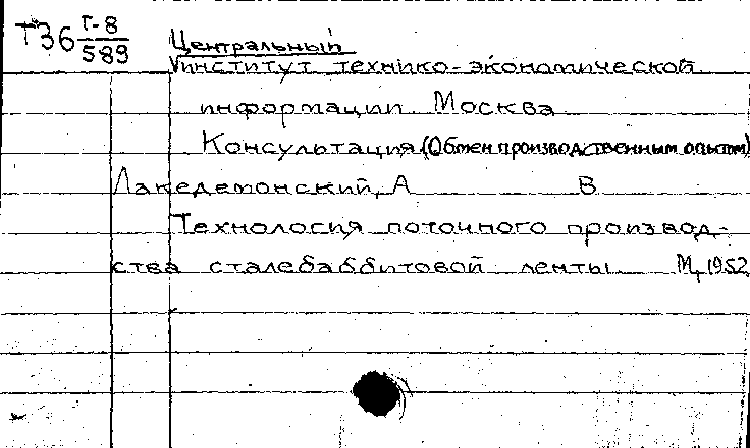 Т36 Г-8
589
Центральный
институт технико-экономической
информации Москва
Консультация (Обмен производственным опытом)
Лакедемонский, А В
Технология поточного производ-
ства сталебаббитовой ленты М, 1952